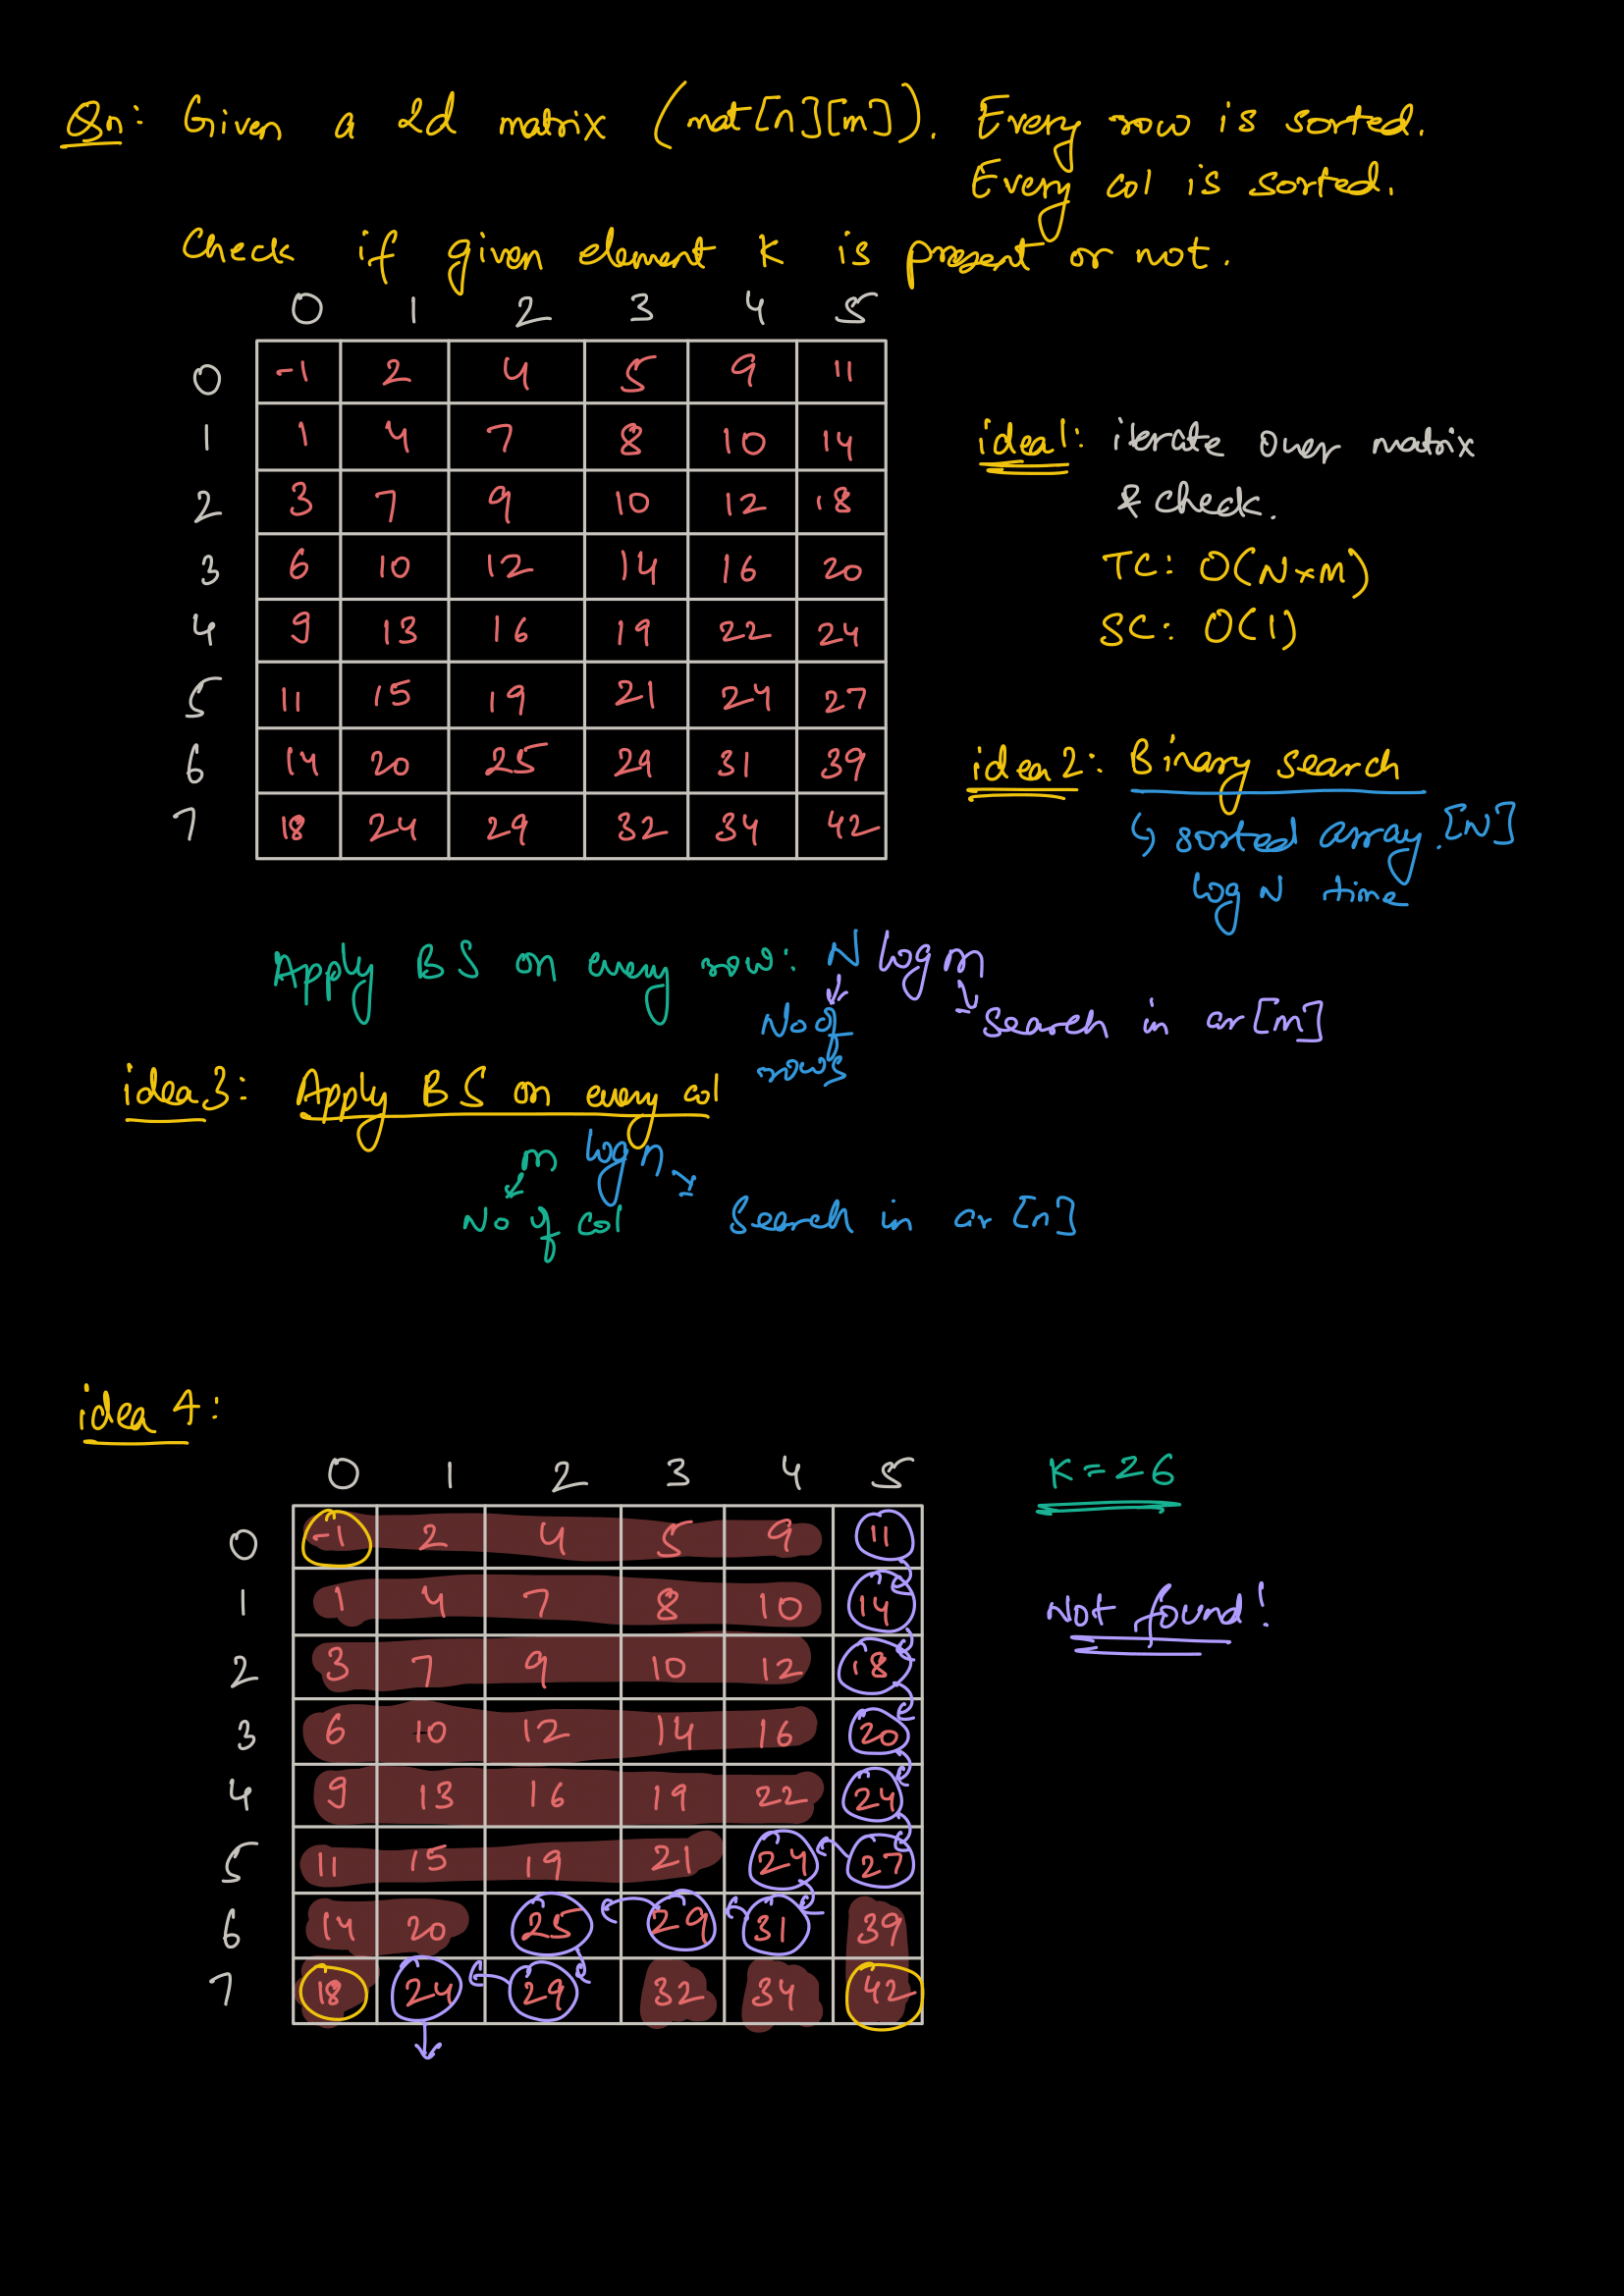 Qn: Given a 2d matrix (mat[n][m]). Every row is sorted.
Every col is sorted.
Check if given element K is present or not.
0 1 2 3 4 5
0 -1 2 4 5 9 11
1 1 4 7 8 10 14
2 3 7 9 10 12 18
3 6 10 12 14 16 20
4 9 13 16 19 22 24
5 11 15 19 21 24 27
6 14 20 25 29 31 39
7 18 24 29 32 34 42
idea1: iterate over matrix
& check.
TC: O(N×M)
SC: O(1)
idea2: Binary search
↳ sorted array.[N]
log N time
Apply BS on every row: N log m
No of
rows
search in ar[m]
idea3: Apply BS on every col
m log n
No of col
Search in ar[n]
idea 4:
0 1 2 3 4 5
0 -1 2 4 5 9 11
1 1 4 7 8 10 14
2 3 7 9 10 12 18
3 6 10 12 14 16 20
4 9 13 16 19 22 24
5 11 15 19 21 24 27
6 14 20 25 29 31 39
7 18 24 29 32 34 42
K=26
Not found!